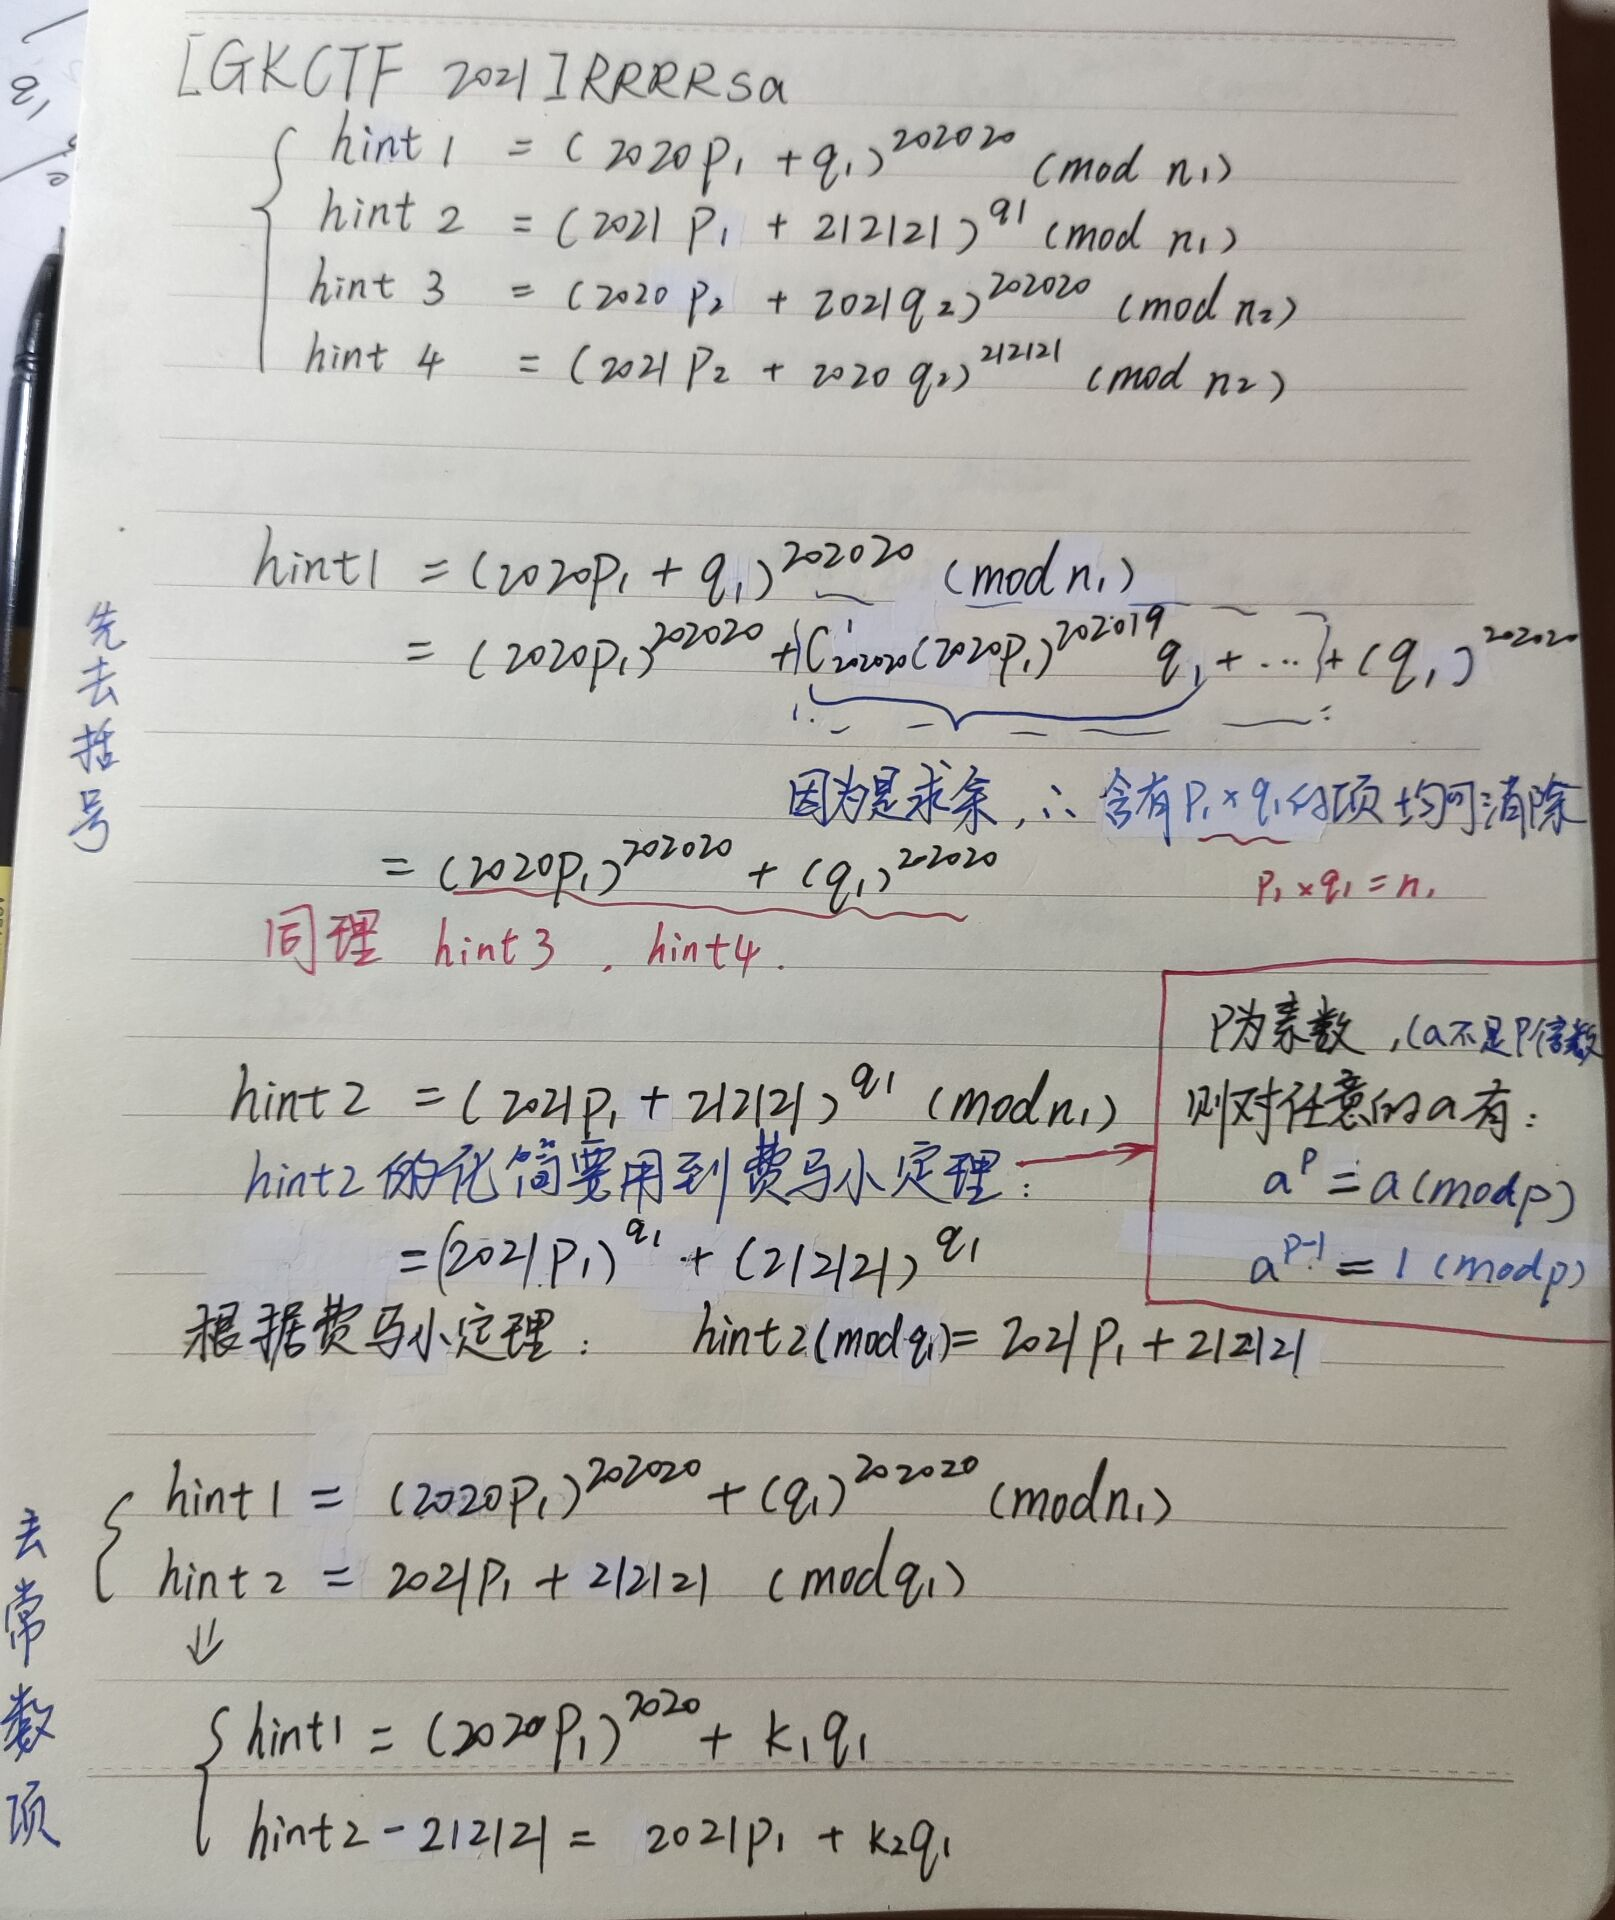 [GKCTF 2021]RRRRsa
hint1 = (2020p₁ + q₁)^202020 (mod n₁)
hint2 = (2021 p₁ + 212121)^q1 (mod n₁)
hint3 = (2020 p₂ + 2021q₂)^202020 (mod n₂)
hint4 = (2021 p₂ + 2020 q₂)^212121 (mod n₂)
先去括号
hint1 = (2020p₁ + q₁)^202020 (mod n₁)
= (2020p₁)^202020 + C¹₂₀₂₀₂₀(2020p₁)^202019 q₁ + ... + (q₁)^202020
因为是求余,∴ 含有p₁×q₁的项均可消除
= (2020p₁)^202020 + (q₁)^202020
p₁×q₁=n₁
同理 hint3 . hint4.
P为素数,(a不是P倍数
则对任意的a有:
a^p = a(mod p)
a^p-1 = 1 (mod p)
hint2 = (2021p₁ + 212121)^q1 (mod n₁)
hint2的化简要用到费马小定理:
=(2021p₁)^q₁ + (212121)^q1
根据费马小定理: hint2(mod q₁)= 2021p₁ + 212121
去常数项
hint1 = (2020p₁)^202020 + (q₁)^202020 (mod n₁)
hint2 = 2021p₁ + 212121 (mod q₁)
⇓
hint1 = (2020p₁)^2020 + k₁q₁
hint2 - 212121 = 2021p₁ + k₂q₁